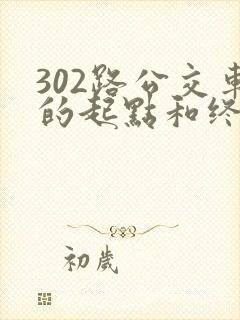 302路公交車
的起點和终
初歲